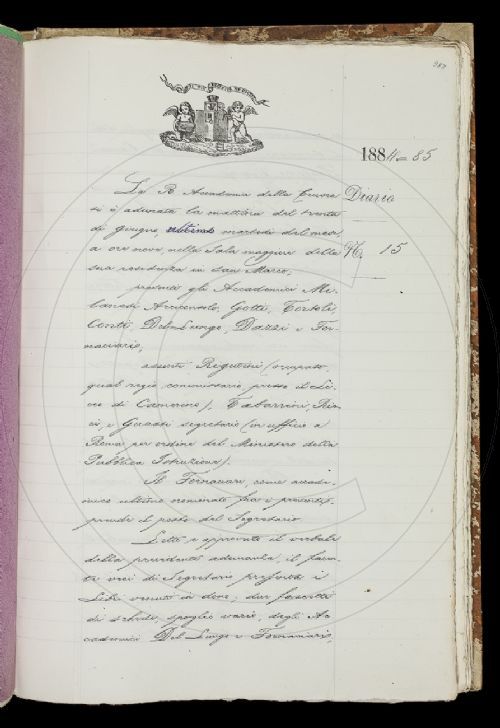 267
1884-85
La R. Accademia della Crusca Diario
si è adunata la mattina del trenta
di giugno, ultimo martedì del mese,
a ore nove, nella Sala maggiore della N. 15
sua residenza in San Marco,
presenti gli Accademici Mi-
lanesi, Arciconsolo, Gotti, Tortoli,
Conti, Del Lungo, Dazzi e For-
naciari,
assenti Rigutini (occupato,
qual regio commissario presso il Li-
ceo di Camerino), Tabarrini, Ric-
ci, e Guasti segretario (in ufficio a
Roma per ordine del Ministero della
Pubblica Istruzione).
Il Fornaciari, come accade-
mico ultimo nominato fra i presenti,
prende il posto del Segretario.
Letto e approvato il verbale
della precedente adunanza, il facen-
te veci di Segretario presenta i
Libri venuti in dono; due fascetti
di schede, spoglio vario, degli Ac-
cademici Del Lungo e Fornaciari,